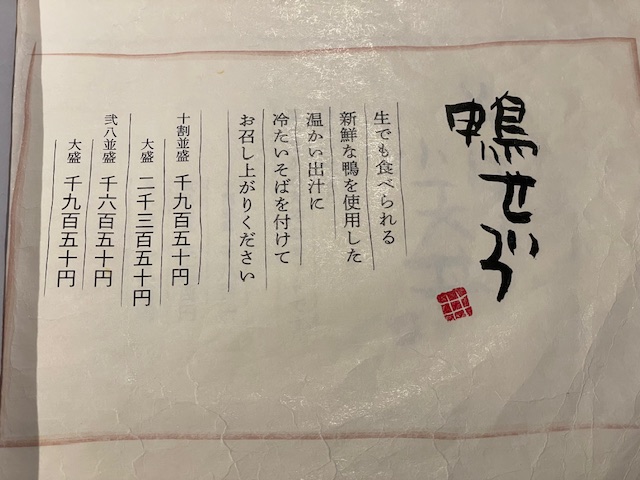 鴨せいろ
生でも食べられる
新鮮な鴨を使用した
温かい出汁に
冷たいそばを付けて
お召し上がりください
十割並盛 千九百五十円
大盛 二千三百五十円
弐八並盛 千六百五十円
大盛 千九百五十円